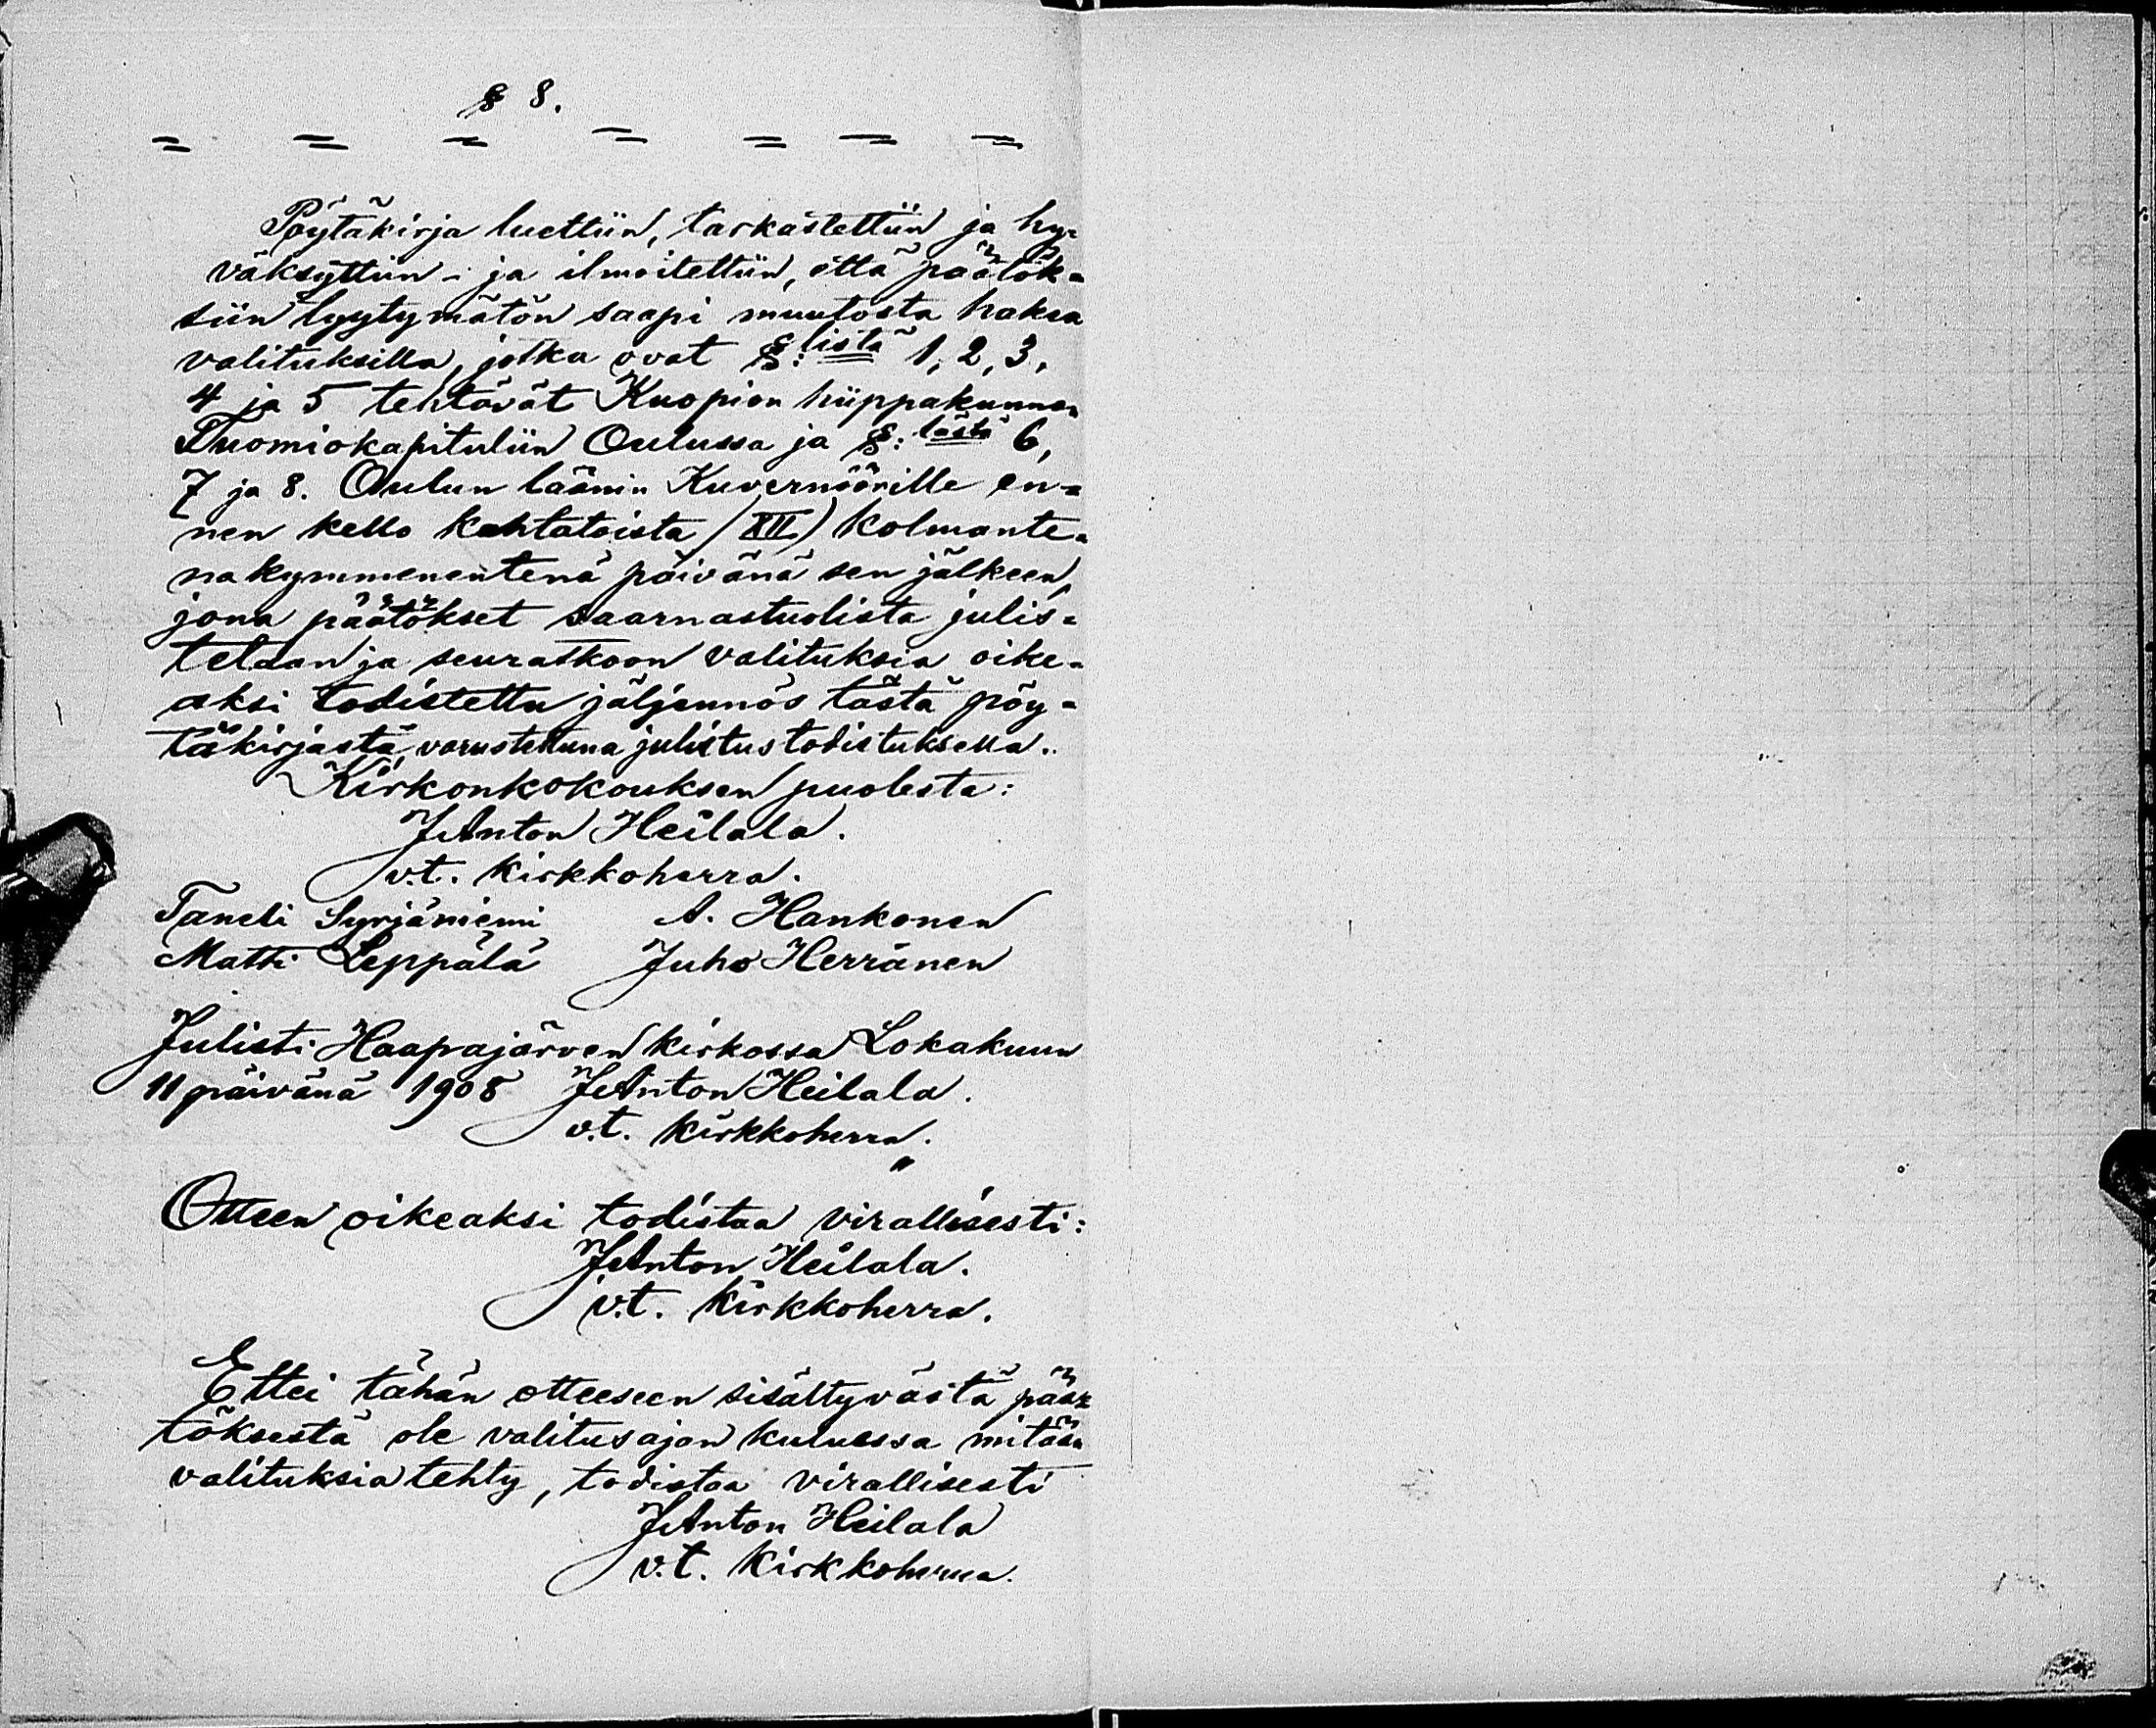 § 8.
= = = = = = =
Pöytäkirja luettiin, tarkastettiin ja hy=
väksyttiin - ja ilmoitettiin, että päätök=
siin tyytymätön saapi muutosta hakea
valituksilla, jotka ovat §:listä 1, 2, 3,
4 ja 5 tehtävät Kuopion hiippakunnan
Tuomiokapituliin Oulussa ja §:lästä 6,
7 ja 8. Oulun läänin Kuvernöörille en=
nen kello kahtatoista (XII) kolmante=
nakymmenentenä päivänä sen jälkeen,
jona päätökset saarnastuolista julis=
tetaan ja seuratkoon valituksia oike=
aksi todistettu jäljennös tästä pöy=
täkirjasta, varustettuna julistustodistuksella.
Kirkonkokouksen puolesta:
J Anton Heilala.
v.t. kirkkoherra.
Taneli Syrjäniemi A. Hankonen
Matti Leppälä Juho Herranen
Julisti Haapajärven kirkossa Lokakuun
11 päivänä 1908 J Anton Heilala.
v.t. kirkkoherra.
Otteen oikeaksi todistaa virallisesti:
J Anton Heilala.
v.t. kirkkoherra.
Ettei tähän otteeseen sisältyvästä pää=
töksestä ole valitusajan kuluessa mitään
valituksia tehty, todistaa virallisesti
J Anton Heilala
v.t. kirkkoherra.